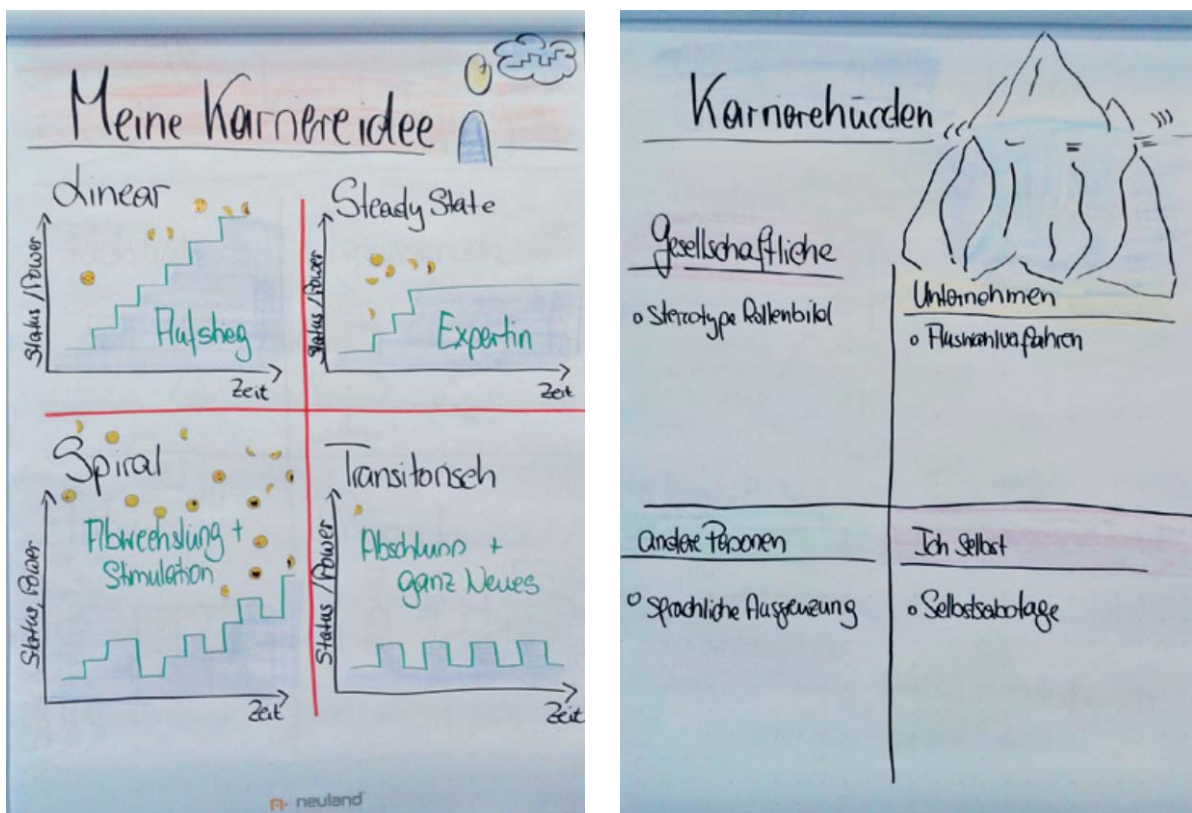 Meine Karriereidee
Linear
Status/Power
Aufstieg
Zeit
Steady State
Status/Power
Expertin
Zeit
Spiral
Status, Power
Abwechslung +
Stimulation
Zeit
Transitorisch
Status/Power
Abschluss +
ganz Neues
Zeit
neuland
Karrierehürden
Gesellschaftliche
o Stereotype Rollenbild
Unternehmen
o Auswahlverfahren
andere Personen
o Sprachliche Ausgrenzung
Ich selbst
o Selbstsabotage